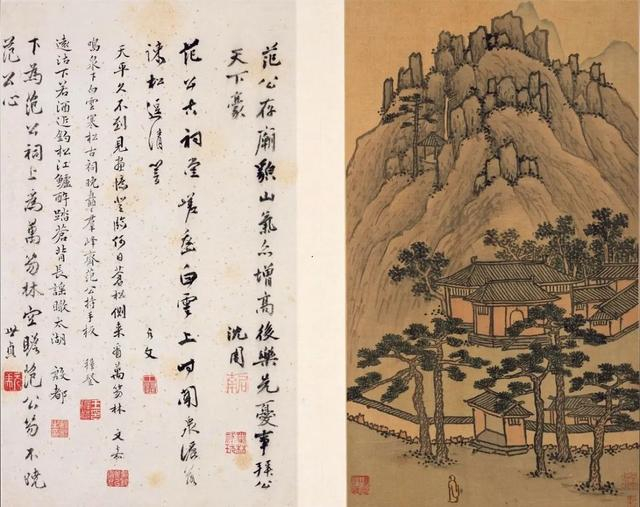 范公存廟貌山氣亦增高後樂先憂事拜公
天下豪 沈周
范公古祠堂嵯峨白雲上時聞
松清 允文
天平久不到見畫憶登臨何日蒼松側來看萬笏林 文嘉
鳴泉下白雲寒松古祠晚矗矗群峰齊范公持手板 穉登
遠沽下若酒近釣松江鱸醉踏蒼背長謠瞰太湖 殷都
下為范公祠上為萬笏林空瞻范公笏不曉
范公心 世貞